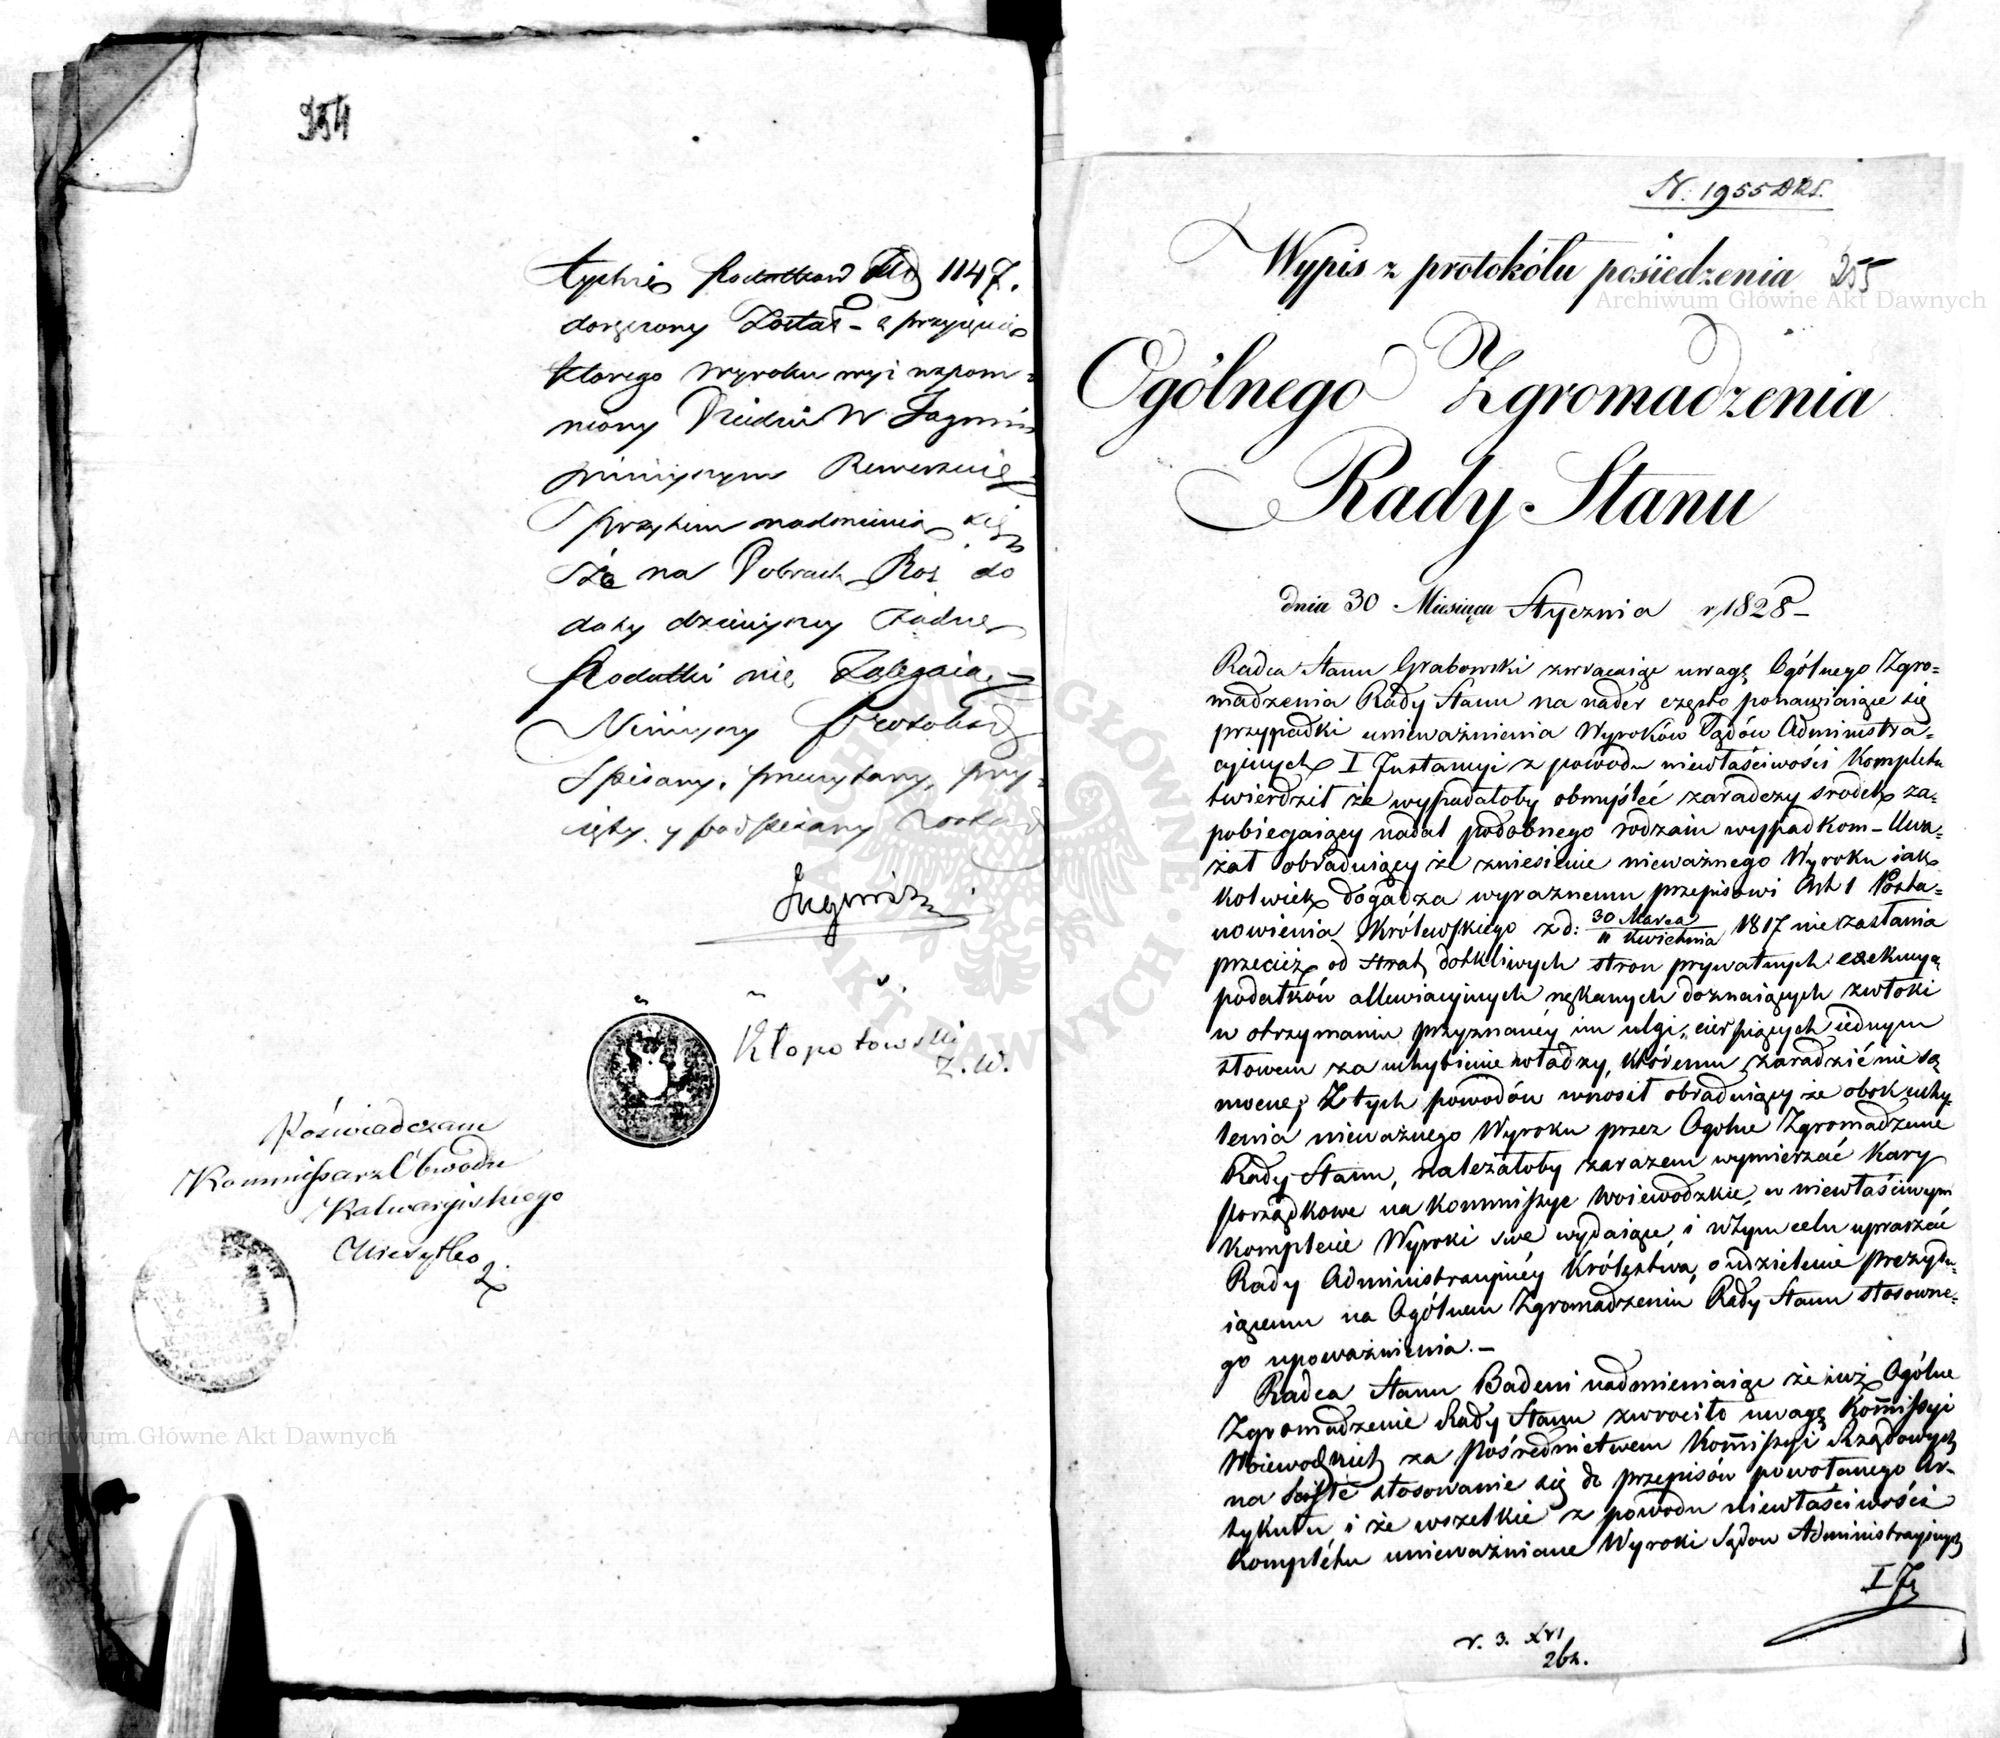 254
tychże Podatków Nro 1147.
doręczony Został – a przyjęcie
którego wyroku wyż wspom=
niony Dziedzic W Jagmin
niniejszym Rewersuie
przytem nadmienia się
Że na Dobrach Ros do
daty dzisieyszey żadne
Podatki nie Zalegaią –
Ninieyszy Protokół
Spisany, przeczytany, przy=
ięty y podpisany został
Jagmin
Kłopotowski
Z.W.
Poświadczam
Kommissarz Obwodu
Kalwaryiskiego
N. 1955 DRS.
Wypis z protokółu posiedzenia 255
Ogólnego Zgromadzenia
Rady Stanu
dnia 30 Miesiąca Stycznia r 1828 –
Radca Stanu Grabowski zwracaiąc uwagę Ogólnego Zgro=
madzenia Rady Stanu na nader często ponawiaiące się
przypadki unieważnienia Wyroków Sądów Administra=
cyinych I Instancyi z powodu niewłaściwości Kompletu
twierdził że wypadałoby obmyśleć zaradczy środek za=
pobiegaiący nadal podobnego rodzaiu wypadkom – Uwa=
żał obraduiący że zniesienie nieważnego Wyroku iak
kolwiek dogadza wyraznemu przepisowi Art 1 Posta=
nowienia Królewskiego z d: 30 Marca / 11 Kwietnia 1817 nie zasłania
przecież od strat dotkliwych stron prywatnych exekucyą
podatków allewiacyinych nękanych doznaiących zwłoki
w otrzymaniu przyznanéy im ulgi, cierpiących iednym
słowem za uchybienie władzy, któremu zaradzić nie są
mocne; Z tych powodów wnosił obraduiący że obok uchy=
lenia nieważnego Wyroku przez Ogolne Zgromadzenie
Rady Stanu, należałoby zarazem wymierzać kary
porządkowe na Kommissye Woiewodzkie, w niewłaściwym
Komplecie Wyroki swe wydaiące, i w tym celu upraszać
Rady Administracyinéy Królestwa, o udzielenie prezydu=
iącemu na Ogólnem Zgromadzeniu Rady Stanu stosowne=
go upoważnienia. –
Radca Stanu Badeni nadmieniaiąc że iuż Ogólne
Zgromadzenie Rady Stanu zwrociło uwagę Kom̄issyi
Woiewodzkich za pośrednictwem Kom̄issyi Rządowych
na ścisłe stosowanie się do przepisów powołanego Ar=
tykułu i że wszelkie z powodu niewłaściwości
Kompletu unieważniane Wyroki Sądów Administracyjnych
I Jn
v. 3. XVI
26k.
Archiwum Główne Akt Dawnych
Archiwum Główne Akt Dawnych
ARCHIWUM GŁÓWNE AKT DAWNYCH